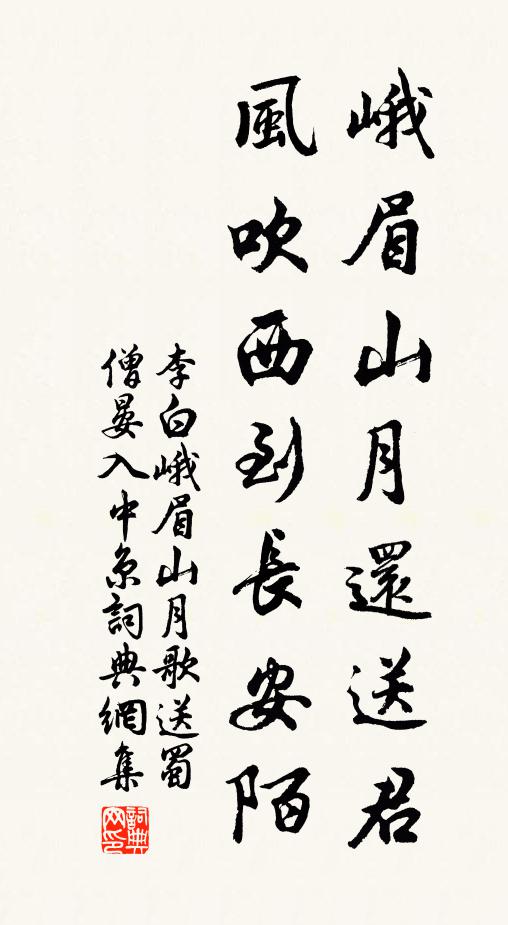 峨眉山月還送君
風吹西到長安陌
李白峨眉山月歌送蜀
僧晏入中京詞典網集
詞典
网印